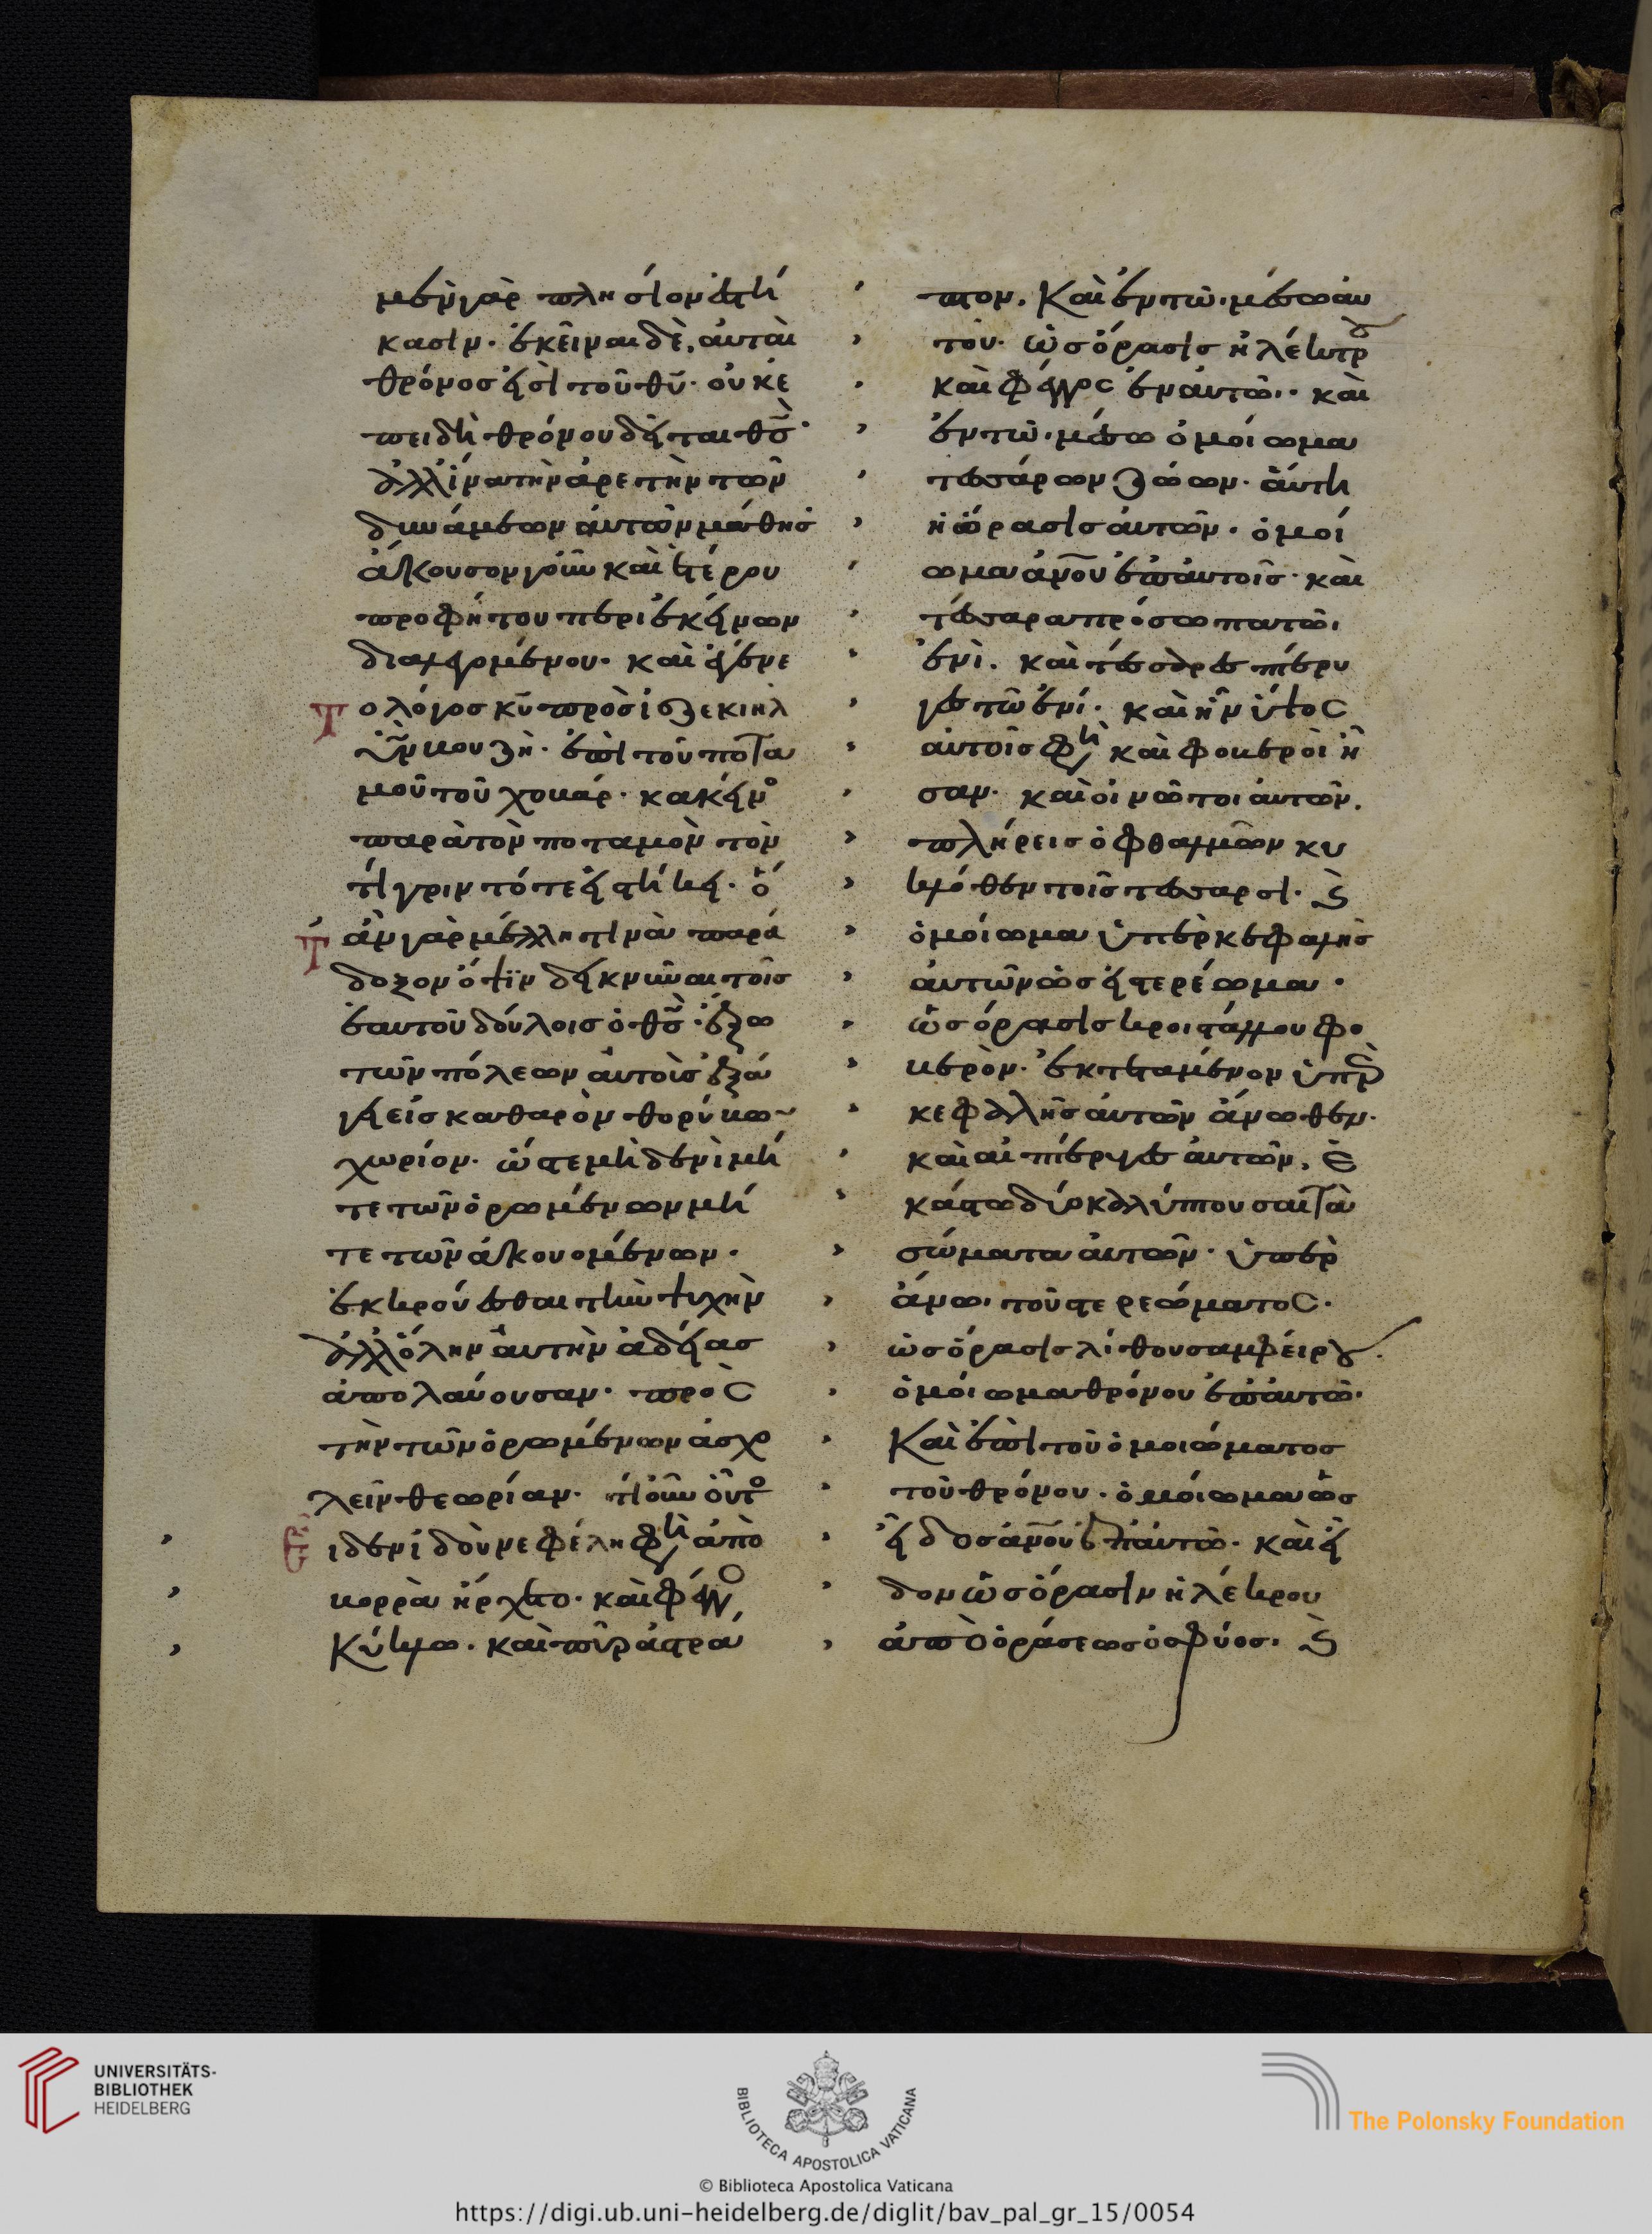 μὲν γὰρ πλησίον ἑστή
κασιν. ἐκεῖναι δὲ, αὐταὶ
θρόνος εἰσὶ τοῦ θῦ. οὐκ ἐ
πειδὴ θρόνου δεῖται θς̅.
ἀλλ ἵνα τὴν ἀρετὴν τῶν
δυνάμεων αὐτῶν μάθησ
ἄκουσον γοῦν καὶ ἑτέρου
προφήτου περὶ ἐκείνων
διαλεγομένου. καὶ ἐγένε
Τ ο λόγος κῦ πρὸς ἰεζεκιηλ
υἱὸν βουζὴ. ἐπὶ τοῦ ποτα
μοῦ τοῦ χοβάρ. κακεῖνο
παρὰ τὸν ποταμὸν τὸν
τίγριν τότε εἱστήκει. ὅ
Τ ἀν γὰρ μέλλη τινὰ παρά
δοξον ὄψιν δεικνῦναι τοῖς
ἑαυτοῦ δούλοις ὁ θς̅. ἔξω
τῶν πόλεων αὐτοὺς ἐξά
γει εἰς καθαρὸν θορύβω
χωρίον. ὥστε μὴδενὶ μή
τε τῶν ὁρωμένων μή
τε τῶν ἀκουομένων.
ἐκκρούεσθαι τὴν ψυχὴν
ἀλλ ὅλην αὐτὴν ἀδείας
ἀπολαύουσαν. προς
τὴν τῶν ὁρωμένων ἀσχο
λεῖν θεωρίαν. τί οὖν οὗτο
ιδεν ἰδοὺ νεφέλη φη ἀπὸ
βορρὰ ἤρχετο. καὶ φέγγο
κύκλω. καὶ πῦρ ἀστρά
πτον. Καὶ ἐν τῶ μέσω αὐ
τοῦ. ὡς ὅρασις ἠλέκτρου
καὶ φέγγος ἐν αὐτῶ. καὶ
ἐν τῶ μέσω ὁμοίωμα
τεσσάρων ζώων. αὕτη
ἡ ὅρασις αὐτῶν. ὁμοί
ωμα ἀνου ἐπ αὐτοῖς. καὶ
τέσσαρα πρόσωπα τῶ
ἑνὶ. καὶ τέσσαρες πτέρυ
γες τῶ ἑνί. καὶ ἦν ὕψος
αὐτοῖς φη καὶ φοβεροὶ ἦ
σαν. καὶ οἱ νῶτοι αὐτῶν.
πλήρεις ὀφθαλμῶν κυ
κλόθεν τοῖς τέσσαρσι. ϗ
ὁμοίωμα ὑπὲρ κεφαλῆς
αὐτῶν ὡσεὶ στερέωμα.
ὡς ὅρασις κροιστάλλου φο
βερὸν. ἐκτεταμένον ὑπὲρ
κεφαλῆς αὐτῶν ἄνωθεν.
καὶ αἱ πτέρυγες αὐτῶν. ἑ
κάστω δύο καλύπτουσαι τὰ
σώματα αὐτῶν. ὑπὲρ
ἄνω τοῦ στερεώματος.
ὡς ὅρασις λίθου σαμφείρου.
ὁμοίωμα θρόνου ἐπ αὐτῶ.
Καὶ ἐπὶ τοῦ ὁμοιώματος
τοῦ θρόνου. ὁμοίωμα ὡς
εἶδος ἀνου ἐπ αὐτῶ. καὶ εἶ
δον ὡς ὅρασιν ἠλέκρου
ἀπὸ ὁράσεως ὀσφύος. ϗ
UNIVERSITÄTS-
BIBLIOTHEK
HEIDELBERG
BIBLIOTECA APOSTOLICA VATICANA
The Polonsky Foundation
© Biblioteca Apostolica Vaticana
https://digi.ub.uni-heidelberg.de/diglit/bav_pal_gr_15/0054